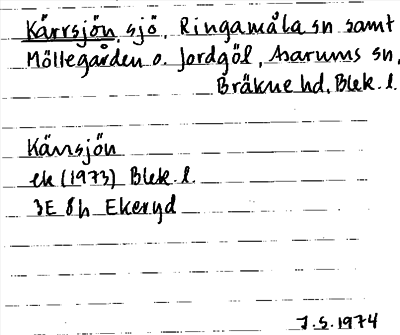 Kärrsjön, sjö, Ringamåla sn samt
Möllegården o. Jordgöl, Asarums sn,
Bräkne hd, Blek. l.
Kärrsjön
ek (1973) Blek. l.
3E 8h Ekeryd
J.S. 1974